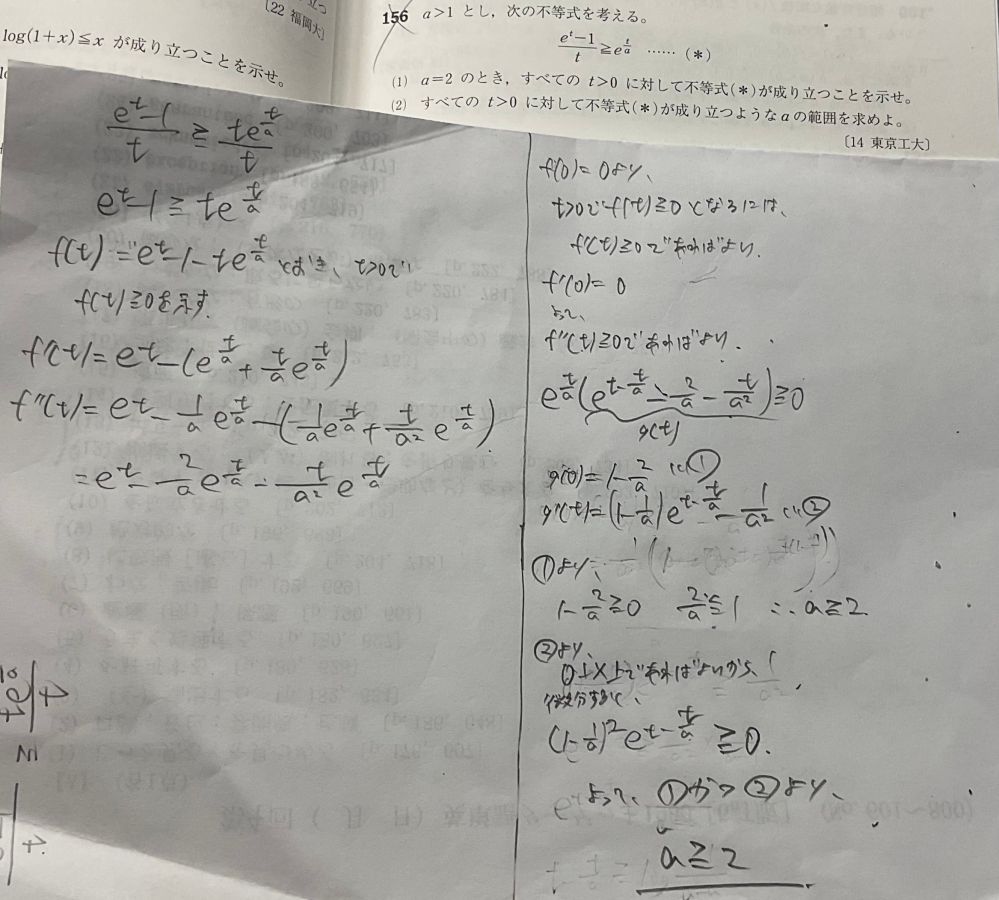 〔22 福岡大〕
log(1+x)≦x が成り立つことを示せ。
156 a>1 とし,次の不等式を考える。
(e^t−1)/t ≧ e^(t/a) …… (*)
(1) a=2 のとき,すべての t>0 に対して不等式(*)が成り立つことを示せ。
(2) すべての t>0 に対して不等式(*)が成り立つような a の範囲を求めよ。
〔14 東京工大〕
(e^t−1)/t ≧ te^(t/a)/t
e^t−1 ≧ te^(t/a)
f(t)=e^t−1−te^(t/a) とおき、t>0で
f(t)≧0を示す.
f'(t)=e^t−(e^(t/a)+(t/a)e^(t/a))
f''(t)=e^t−(1/a)e^(t/a)−((1/a)e^(t/a)+(t/a²)e^(t/a))
=e^t−(2/a)e^(t/a)−(t/a²)e^(t/a)
f(0)=0より、
t>0でf(t)≧0となるには、
f'(t)≧0であればよい.
f'(0)=0
よって、
f''(t)≧0であればよい.
e^(t/a)(e^(t−t/a)−2/a−t/a²)≧0
g(t)
g(0)=1−2/a …①
g'(t)=(1−1/a)e^(t−t/a)−1/a² …②
①より、
1−2/a≧0 2/a≦1 ∴a≧2
②より、
0以上であればよいから、
微分すると、
(1−1/a)²e^(t−t/a)≧0.
よって、①かつ②より、
a≧2